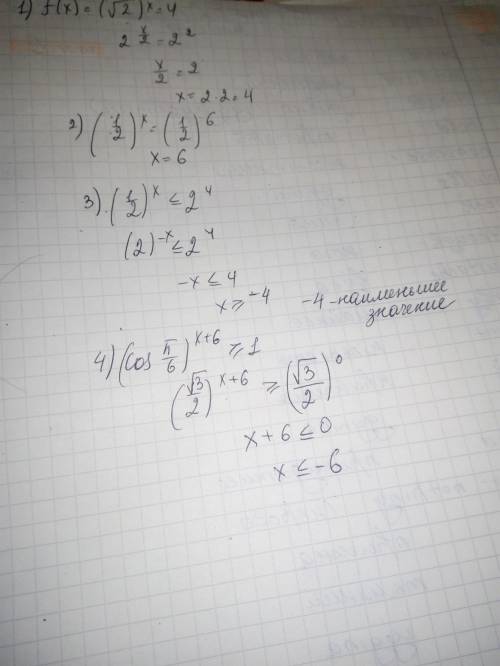 1) f(x) = (√2)^x = 4
2^(x/2) = 2^2
x/2 = 2
x = 2·2 = 4
2) (1/2)^x = (1/2)^6
x = 6
3) (1/2)^x ≤ 2^4
(2)^-x ≤ 2^4
-x ≤ 4
x ≥ -4 -4 - наименьшее
значение
4) (cos π/6)^(x+6) ≥ 1
(√3/2)^(x+6) ≥ (√3/2)^0
x + 6 ≤ 0
x ≤ -6